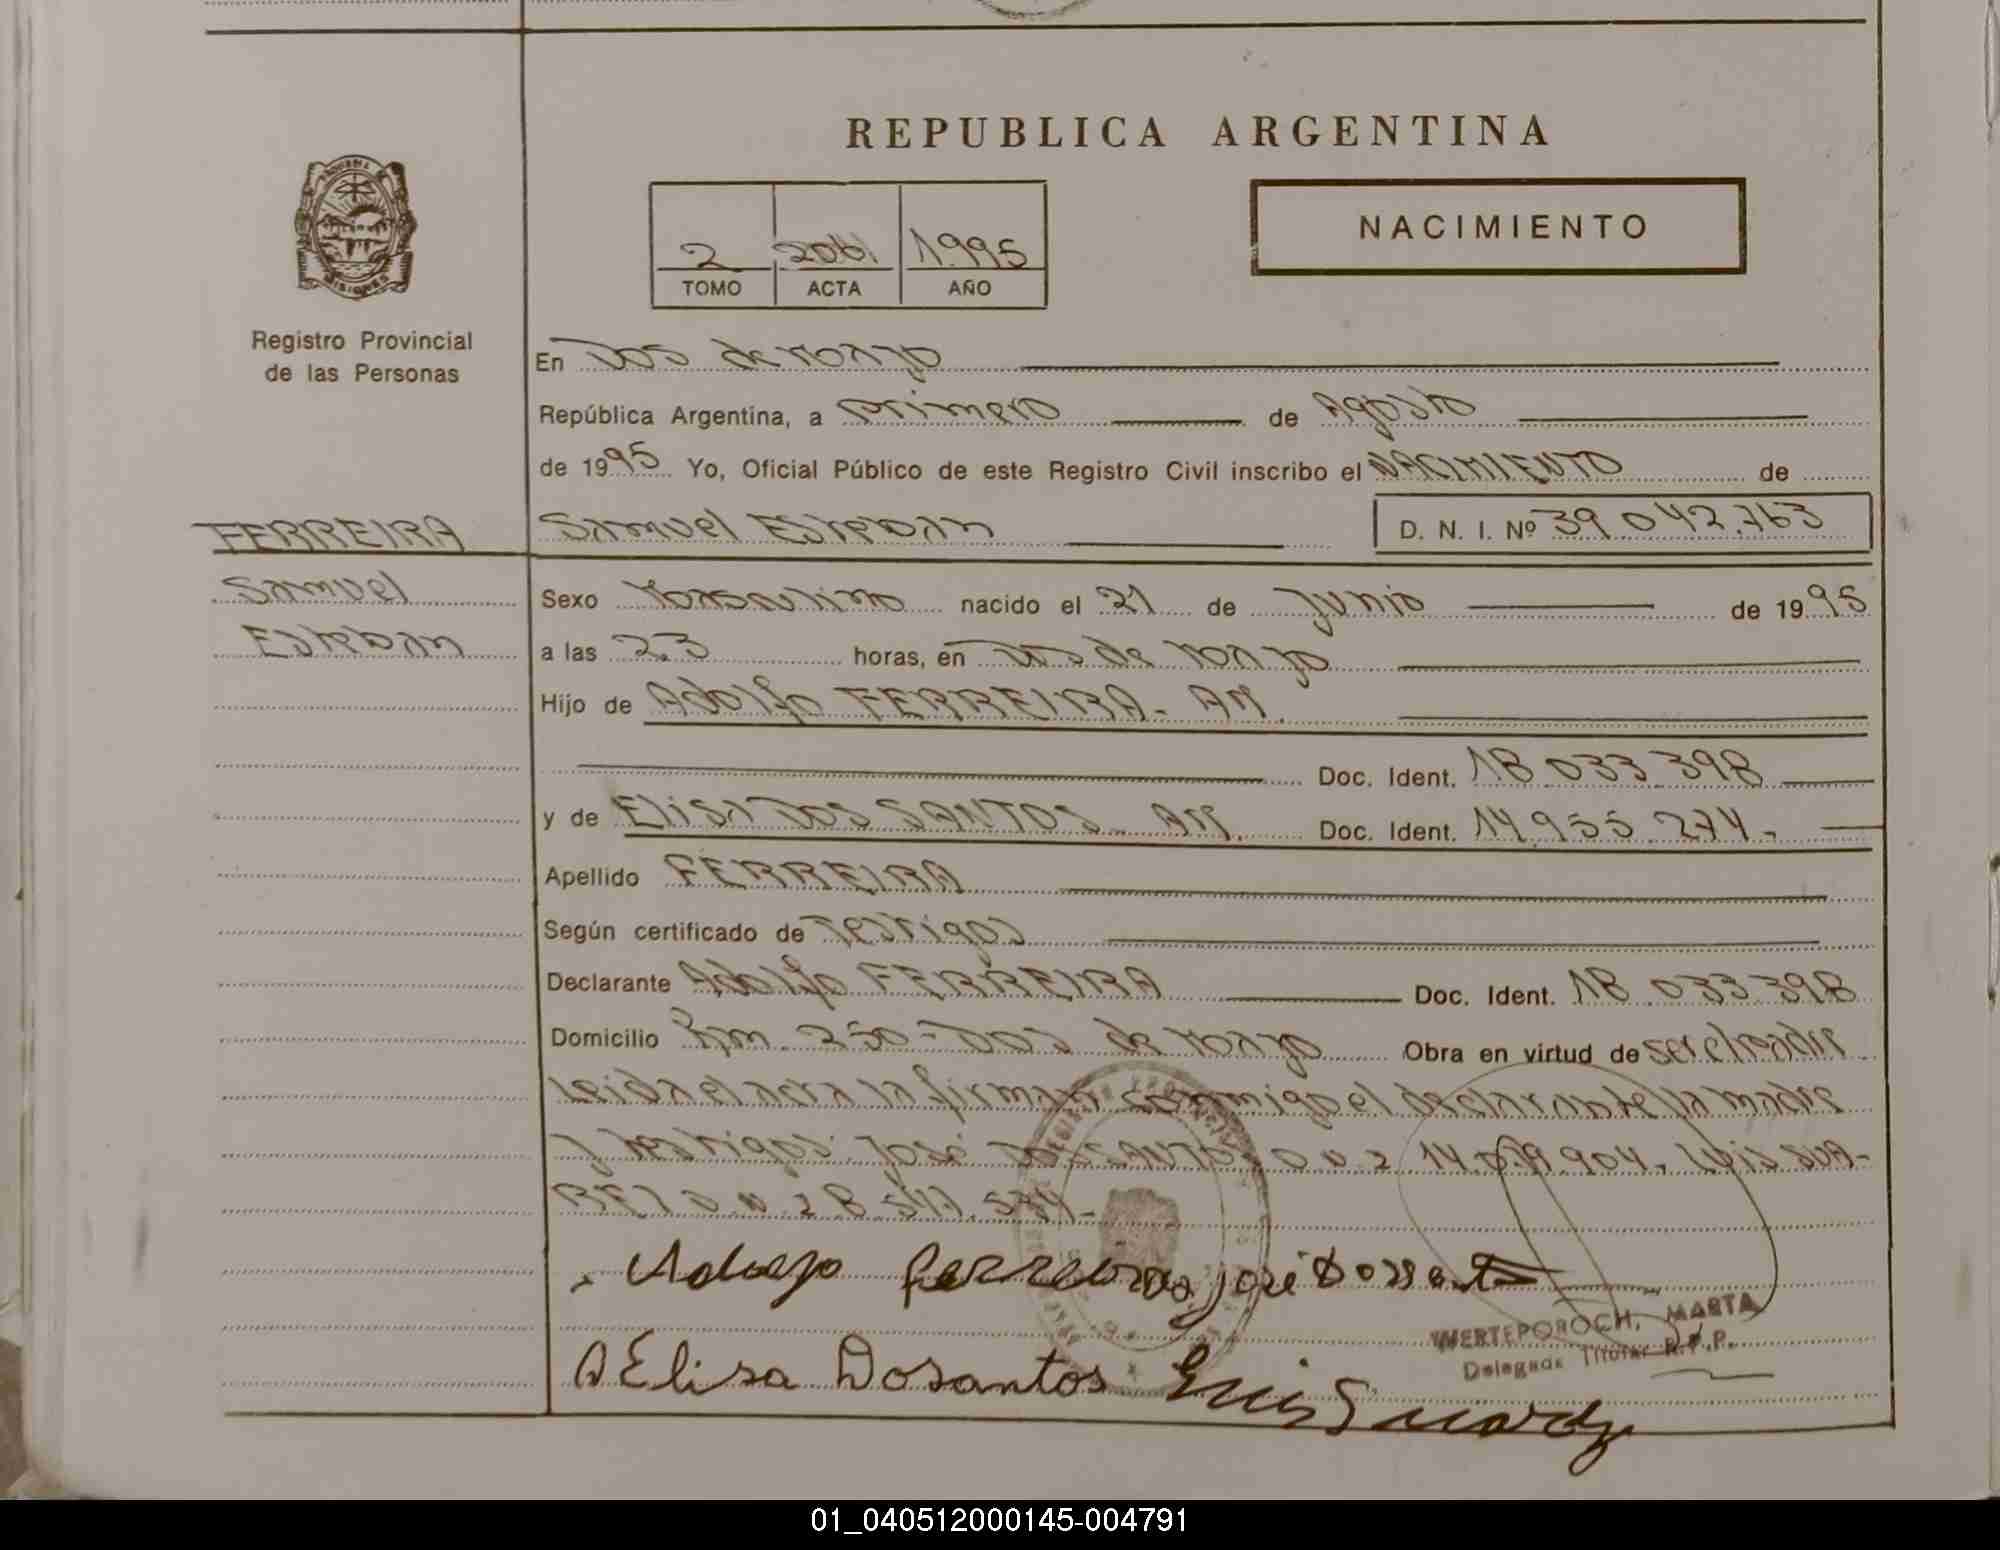 REPUBLICA ARGENTINA
NACIMIENTO
2 2061 1995
TOMO ACTA AÑO
MISIONES
Registro Provincial
de las Personas
En Dos de Mayo
República Argentina, a primero de Agosto
de 1995 Yo, Oficial Público de este Registro Civil inscribo el NACIMIENTO de
FERREIRA
Samuel
Esteban
Samuel Esteban D. N. I. Nº 39.042.763
Sexo Masculino nacido el 21 de Junio de 1995
a las 23 horas, en Dos de Mayo
Hijo de Adolfo FERREIRA - AR.
Doc. Ident. 18.033.398
y de Elisa DOS SANTOS - AR. Doc. Ident. 14.955.274.-
Apellido FERREIRA
Según certificado de Testigos
Declarante Adolfo FERREIRA Doc. Ident. 18.033.398
Domicilio Km. 250 - Dos de Mayo Obra en virtud de ser el padre
Leida el acta la firman conmigo el declarante la madre
y testigos: José DOS SANTOS D.N.I. 14.019.904. Luis SUA-
REZ D.N.I. 8.511.574-
Adolfo Ferreira José Dossanto
WERTEPOROCH, MARTA
Delegada Titular R.P.P.
Elisa Dosantos Luis Suarez
01_040512000145-004791